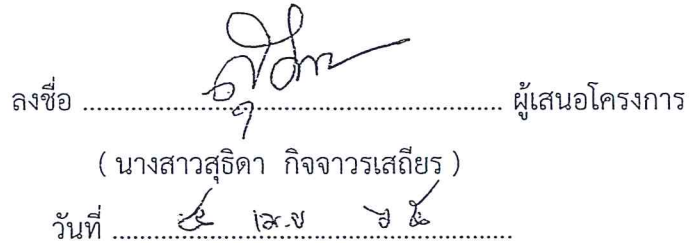 ลงชื่อ ........................................................ ผู้เสนอโครงการ
( นางสาวสุธิดา กิจจาวรเสถียร )
วันที่ ........ เม.ย ........